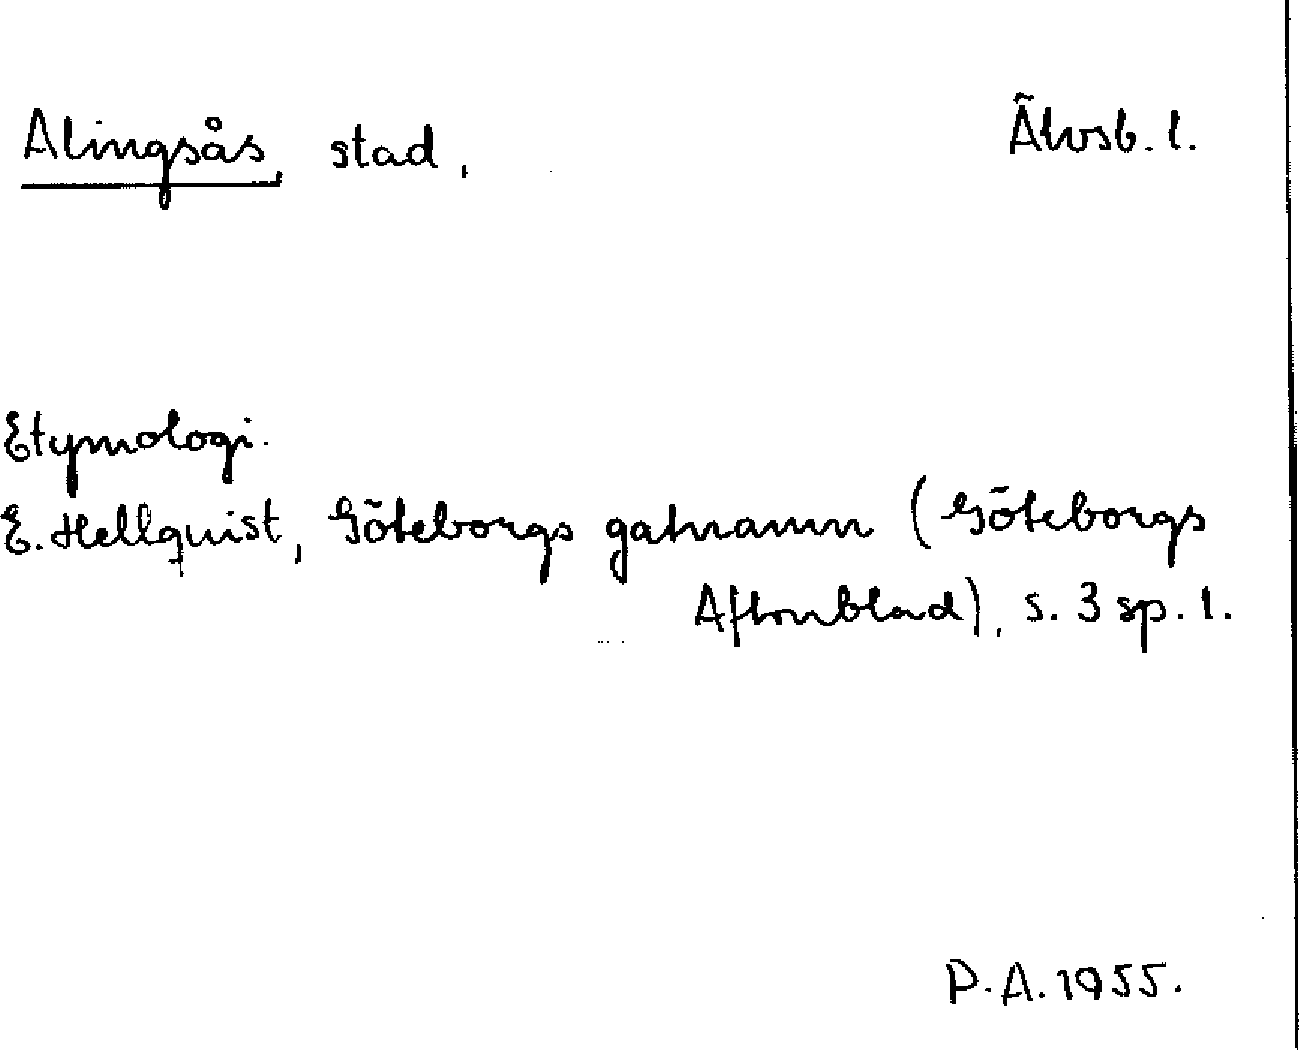 Alingsås, stad, Älvsb. l.
Etymologi.
E. Hellquist, Göteborgs gatnamn (Göteborgs
Aftonblad), s. 3 sp. 1.
P.A. 1955.